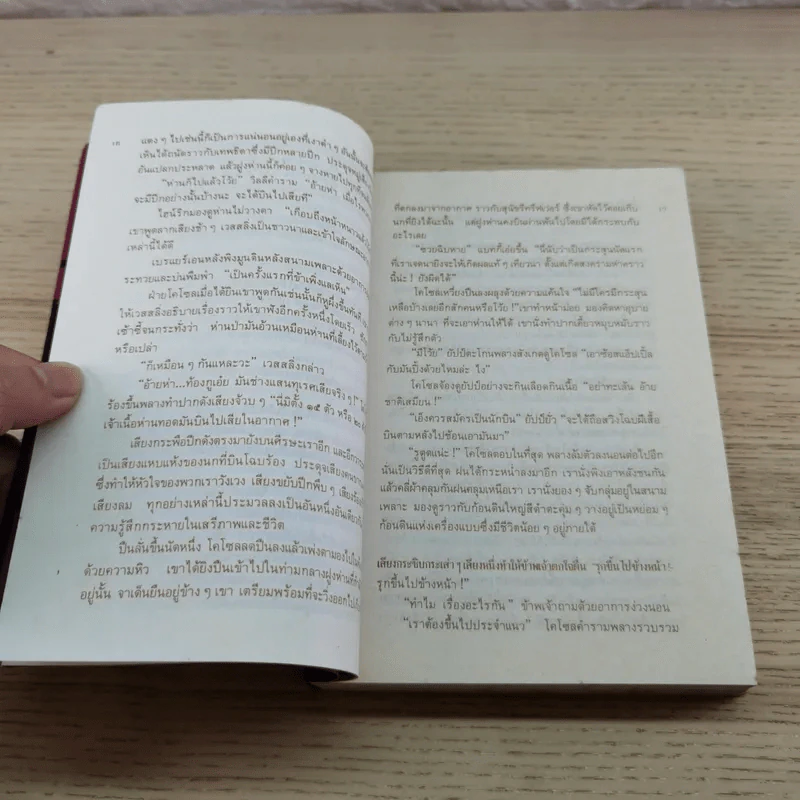 ๑๓
แดง ๆ ไปเช่นนี้ก็เป็นการแน่นอนอยู่เองที่เงาดำ ๆ อันนั้น
เดินได้ถนัดราวกับเทพธิดาซึ่งมีปีกหลายปีก ประดุจหมู่
อันแปลกประหลาด แล้วฝูงห่านนี้ก็ค่อย ๆ จางหายไป
“ห่านก็ไปแล้วโว้ย” วิลลีคำราม “อ้ายห่า เมื่อไร
จะมีปีกอย่างนั้นบ้างนะ จะได้บินไปเสียที”
ไฮน์ริกมองดูห่านไม่วางตา “เกือบถึงหน้าหนาวแล้ว
เขาพูดลากเสียงช้า ๆ เวสสลิ่งเป็นชาวนาและเข้าใจ
เหล่านี้ได้ดี
เบรแยร์เอนหลังพิงมูนดินหลังสนามเพลาะด้วยอาการ
ระทวยและบ่นพึมพำ “เป็นครั้งแรกที่ข้าเพิ่งแลเห็น”
ฝ่ายโคโซลเมื่อได้ยินเขาพูดกันเช่นนั้นก็หูผึ่งขึ้นทันที
ให้เวสสลิ่งอธิบายเรื่องราวให้เขาฟังอีกครั้งหนึ่งโดยเร็ว
เซ้าซี้จนกระทั่งว่า ห่านป่ามันอ้วนเหมือนห่านที่เลี้ยงไว้
หรือเปล่า
“ก็เหมือน ๆ กันแหละวะ” เวสสลิ่งกล่าว
“อ้ายห่า...ท้องกูเอ๋ย มันช่างแสนทุเรศเสียจริง ๆ”
ร้องขึ้นพลางทำปากดังเสียงจ๊วบ ๆ “นี่มีตั้ง ๑๕ ตัว หรือ ๒๐
เจ้าเนื้อห่านทอดมันบินไปเสียในอากาศ !”
เสียงกระพือปีกดังตรงมายังบนศีรษะเราอีก และอีก
เป็นเสียงแหบแห้งของนกที่บินโฉบร้อง ประดุจเสียงคน
ซึ่งทำให้หัวใจของพวกเราวังเวง เสียงขยับปีกพึบ ๆ เสียงร้อง
เสียงลม ทุกอย่างเหล่านี้ประมวลลงเป็นอันหนึ่งอันเดียว
ความรู้สึกกระหายในเสรีภาพและชีวิต
ปืนลั่นขึ้นนัดหนึ่ง โคโซลลดปืนลงแล้วเพ่งตามองไป
ด้วยความหิว เขาได้ยิงปืนเข้าไปในท่ามกลางฝูงห่านที่
อยู่นั้น จาเด็นยืนอยู่ข้าง ๆ เขา เตรียมพร้อมที่จะวิ่งออกไป
ที่ตกลงมาจากอากาศ ราวกับสุนัขรีทรีฟเวอร์ ซึ่งเขาหัดไว้คอยเก็บ
นกที่ยิงได้ฉะนั้น แต่ฝูงห่านคงบินผ่านพ้นไปโดยมิได้กระทบกับ
อะไรเลย
“ซวยฉิบหาย” แบทก์เอ่ยขึ้น “นี่นับว่าเป็นกระสุนนัดแรก
ที่เราเจตนายิงจะให้เกิดผลแท้ ๆ เทียวนา ตั้งแต่เกิดสงครามห่าตะราว
นี่น่ะ ! ยังผิดได้”
โคโซลเหวี่ยงปืนลงผลุงด้วยความแค้นใจ “ไม่มีใครมีกระสุน
เหลือบ้างเลยสักสักคนหรือโว้ย” เขาทำหน้าม่อย มองคิดหาอุบาย
ต่าง ๆ นานา ที่จะเอาห่านให้ได้ เขานั่งทำปากเคี้ยวหมุบหมับราว
กับไม่รู้สึกตัว
“มีโว้ย” ยัปป์ตะโกนพลางสังเกตดูโคโซล “เอาซ้อสแอ๊ปเปิ้ล
กับมันปิ้งด้วยไหมล่ะ ไง”
โคโซลจ้องดูยัปป์อย่างจะกินเลือดกินเนื้อ “อย่าทะเล้น อ้าย
ชาติเสมียน !”
“เอ็งควรสมัครเป็นนักบิน” ยัปป์ยั่ว “จะได้ถือสวิงโฉบผีเสื้อ
บินตามหลังไปช้อนเอามันมา”
“รูตูดแน่ะ !” โคโซลตอบในที่สุด พลางล้มตัวลงนอนต่อไปอีก
นั่นเป็นวิธีดีที่สุด ฝนได้กระหน่ำลงมาอีก เรานั่งพิงเอาหลังชนกัน
แล้วคลี่ผ้าคลุมกันฝนคลุมเหนือเรา เรานั่งยอง ๆ จับกลุ่มอยู่ในสนาม
เพลาะ มองดูราวกับก้อนดินใหญ่สีดำตะคุ่ม ๆ วางอยู่เป็นหย่อม ๆ
ก้อนดินแห่งเครื่องแบบซึ่งมีชีวิตน้อย ๆ อยู่ภายใต้
เสียงกระซิบกระส่ำ ๆ เสียงหนึ่งทำให้ข้าพเจ้าตกใจตื่น “รุกขึ้นไปข้างหน้า
รุกขึ้นไปข้างหน้า !”
“ทำไม เรื่องอะไรกัน” ข้าพเจ้าถามด้วยอาการง่วงนอน
“เราต้องขึ้นไปประจำแนว” โคโซลคำรามพลางรวบรวม